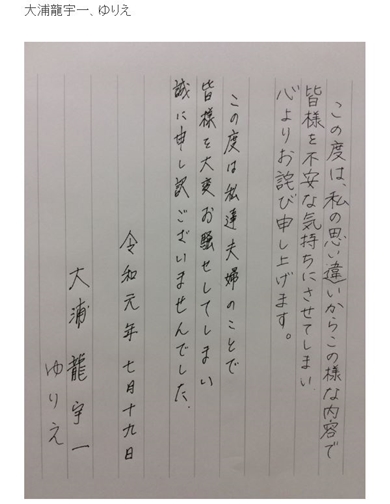 大浦龍宇一、ゆりえ
この度は、私の思い違いからこの様な内容で
皆様を不安な気持ちにさせてしまい、
心よりお詫び申し上げます。
この度は私達夫婦のことで
皆様を大変お騒せしてしまい
誠に申し訳ございませんでした。
令和元年 七月十九日
大浦龍宇一
ゆりえ